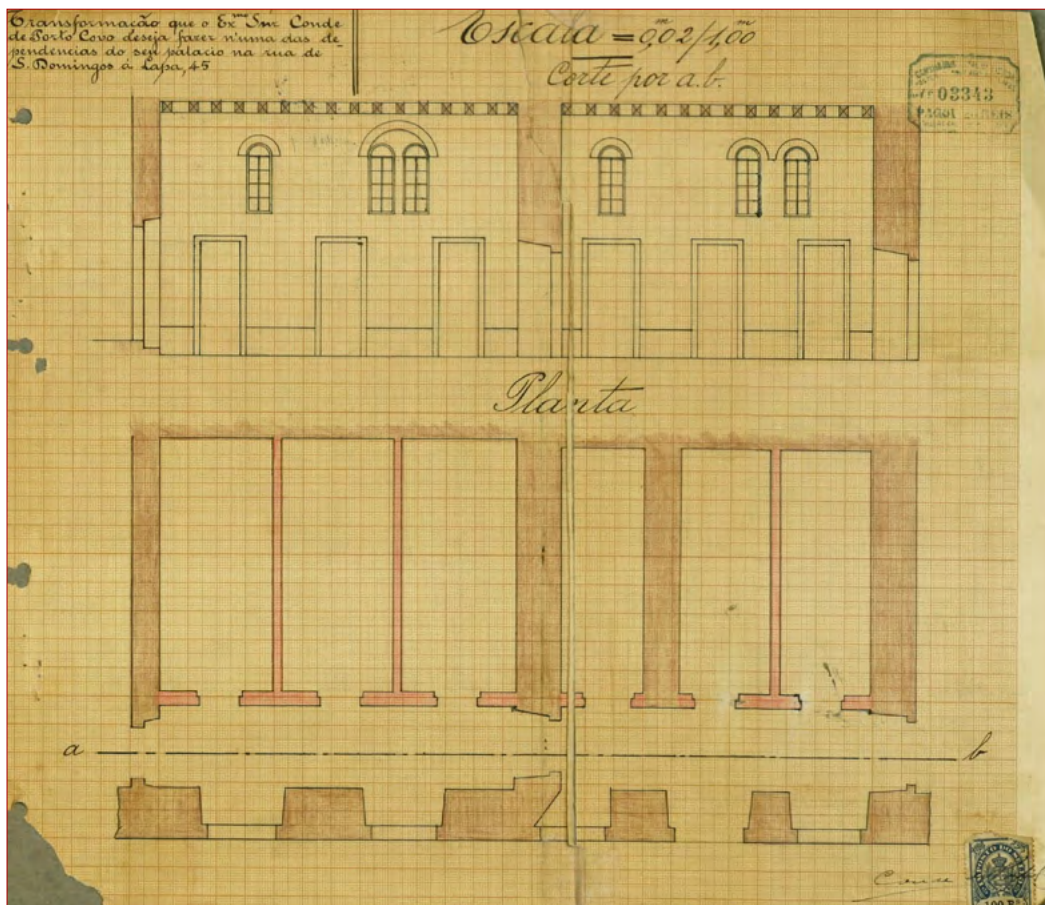 Transformação que o Ex.mo Snr Conde
de Porto Covo deseja fazer n'uma das de
pendencias do seu palacio na rua de
S. Domingos á Lapa, 45
Escala = 0,m02/1,m00
Corte por a.b.
03343
Planta
a
b
Conde
100 R